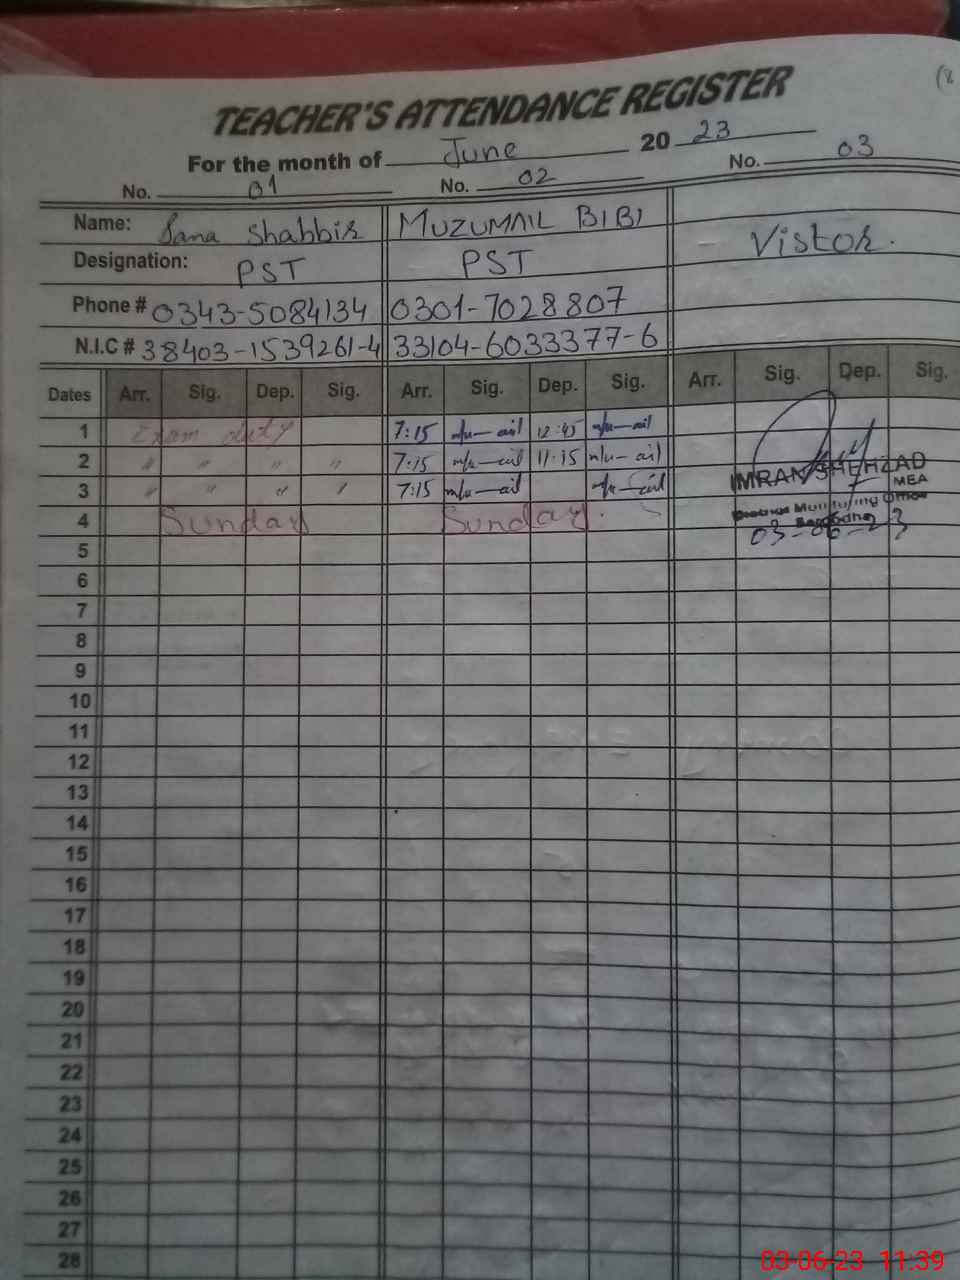 TEACHER'S ATTENDANCE REGISTER
For the month of June 2023
No. 01 No. 02 No. 03
Name: Sana Shabbir MUZUMAIL BIBI Vistor.
Designation: PST PST
Phone # 0343-5084134 0301-7028807
N.I.C # 38403-1539261-4 33104-6033377-6
Dates Arr. Sig. Dep. Sig. Arr. Sig. Dep. Sig. Arr. Sig. Dep. Sig.
1 Exam duty 7:15 m/u-ail 12:45 m/u-ail
2 " " " " 7:15 m/u-ail 11:15 m/u-ail
3 " " " " 7:15 m/u-ail m/u-ail
IMRAN SHEHZAD
MEA
District Monitoring Officer
Sargodha
03-06-23
4 Sunday Sunday.
5
6
7
8
9
10
11
12
13
14
15
16
17
18
19
20
21
22
23
24
25
26
27
28
03-06-23 11:39